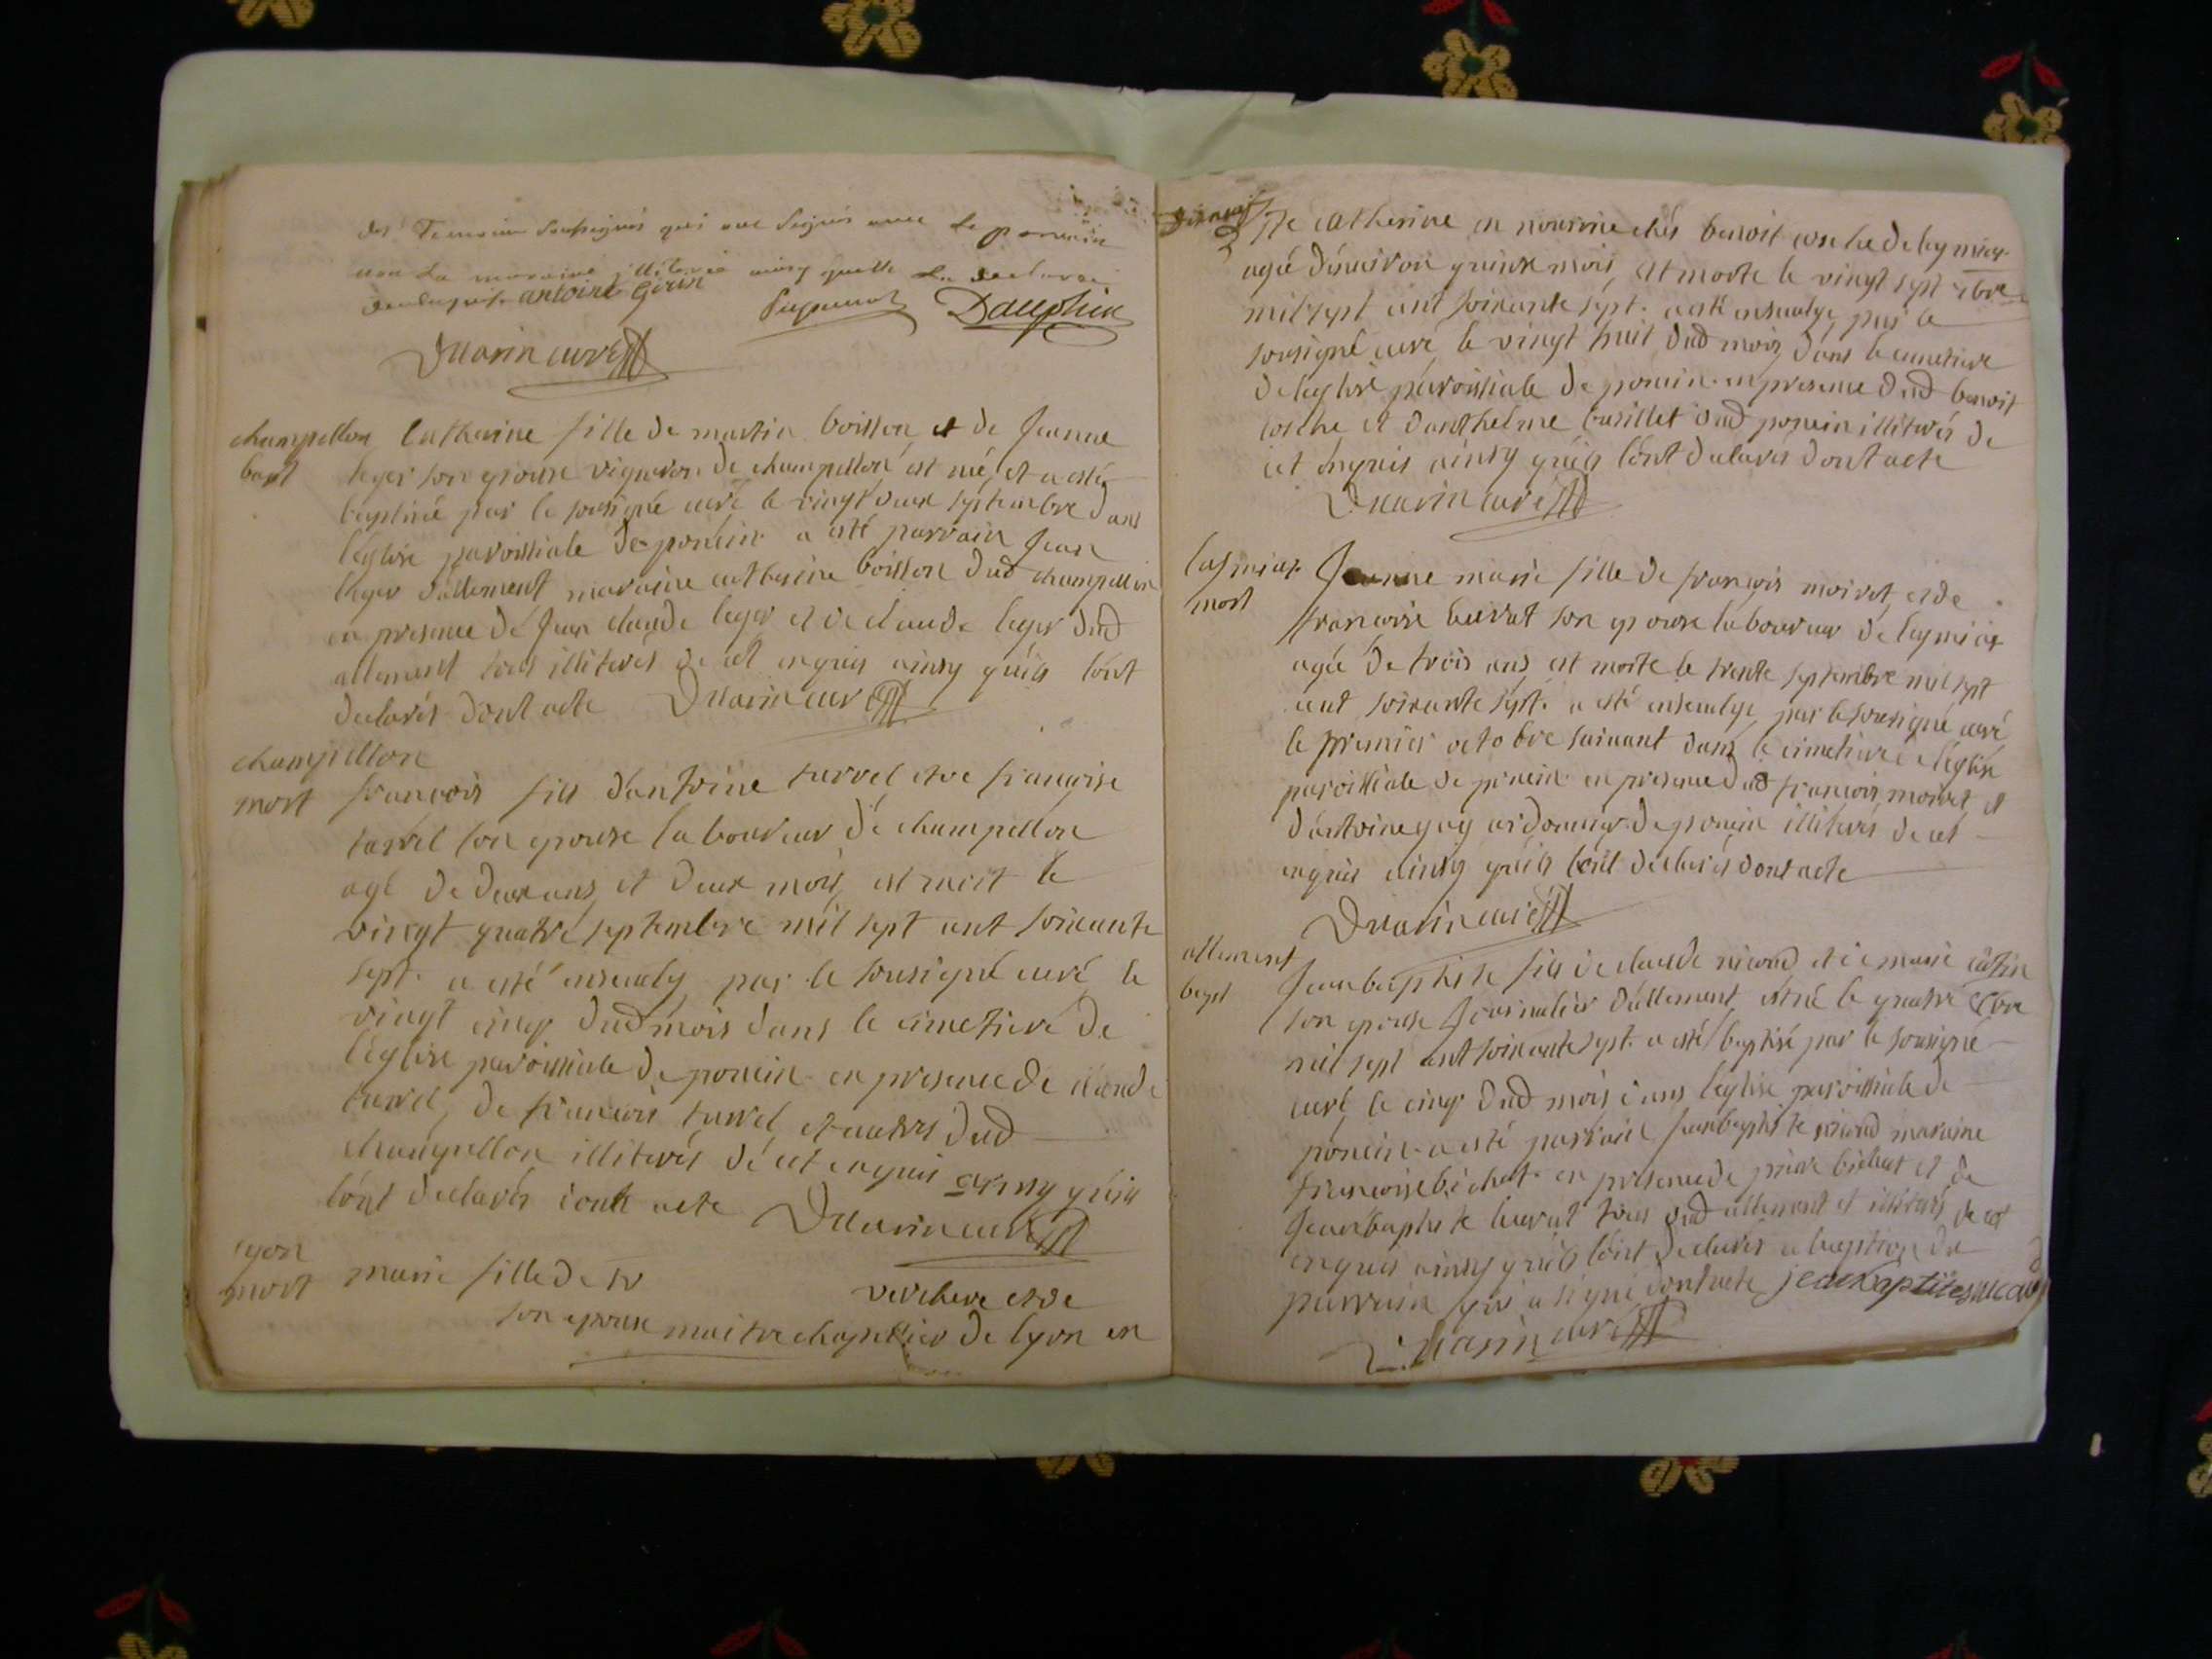 des Temoins Soussignés qui ont Signés avec le parrein
non la maraine illiterée ainsy quelle la declaree
antoine Goiss
Dauphin
Duarin curé
champellon
bapt
Catherine fille de martin boisson et de Jeanne
leger son epouse vigneron de champellon est né, et a esté
baptisée par le sousigné curé le vingt deux septembre dans
l'église paroissiale de poncin a esté parrain Jean
leger d'allement maraine catherine boisson dud champellon
en presence de Jean claude leger et de claude leger dud
allement tous illiterés de cet enquis ainsy quils lont
declarés dont acte Duarin curé
champellon
mort
françois fils dantoine turrel et de françoise
turrel son epouse laboureur de champellon
agé de deux ans et deux mois est mort le
vingt quatre septembre mil sept cent soixante
sept. a esté ensevely par le sousigné curé le
vingt cinq dud mois dans le cimetiere de
l'église paroissiale de poncin en presence de claude
turrel, de françois turrel et autres dud
champellon illiterés de cet enquis ainsy quils
lont declarés dont acte Duarin curé
lyon
mort
marie fille de sr
verchere et de
son epouse maitre chapellier de lyon en
Ste catherine en nourrine chés benoit cosche de leymiat
agée denviron quinze mois, est morte le vingt sept 7bre
mil sept cent soixante sept. a esté ensevelye par le
sousigné curé le vingt huit dud mois dans le cimetiere
de leglise paroissiale de poncin en presence dud benoit
cosche et danthelme dud poncin illiterés de
cet enquis ainsy quils lont declarés dont acte
Duarin curé
leymiat
mort
Jeanne marie fille de françois moiret et de
françoise buvat son epouse laboureur de leymiat
agée de trois ans est morte le trente septembre mil sept
cent soixante sept. a esté ensevelye par le sousigné curé
le premier octobre suivant dans le cimetiere de l'église
paroissiale de poncin en presence dud françois moiret et
dantoine guy cordonnier de poncin illiterés de cet
enquis ainsy quils lont declarés dont acte
Duarin curé
allement
bapt
Jeanbaptiste fils de claude nicoud et de marie
son epouse Journalier d'allement est né le quatre 8bre
mil sept cent soixante sept. a esté baptisé par le sousigné
curé le cinq dud mois dans l'église paroissiale de
poncin a esté parrain Jeanbaptiste nicoud maraine
françoise bichat en presence de pierre bichat et de
Jeanbaptiste buvat tous dud allement et illiterés de cet
enquis ainsy quils lont declarés a lexeption du
parrain qui a signé dont acte jeanbaptiste nicaud
Duarin curé